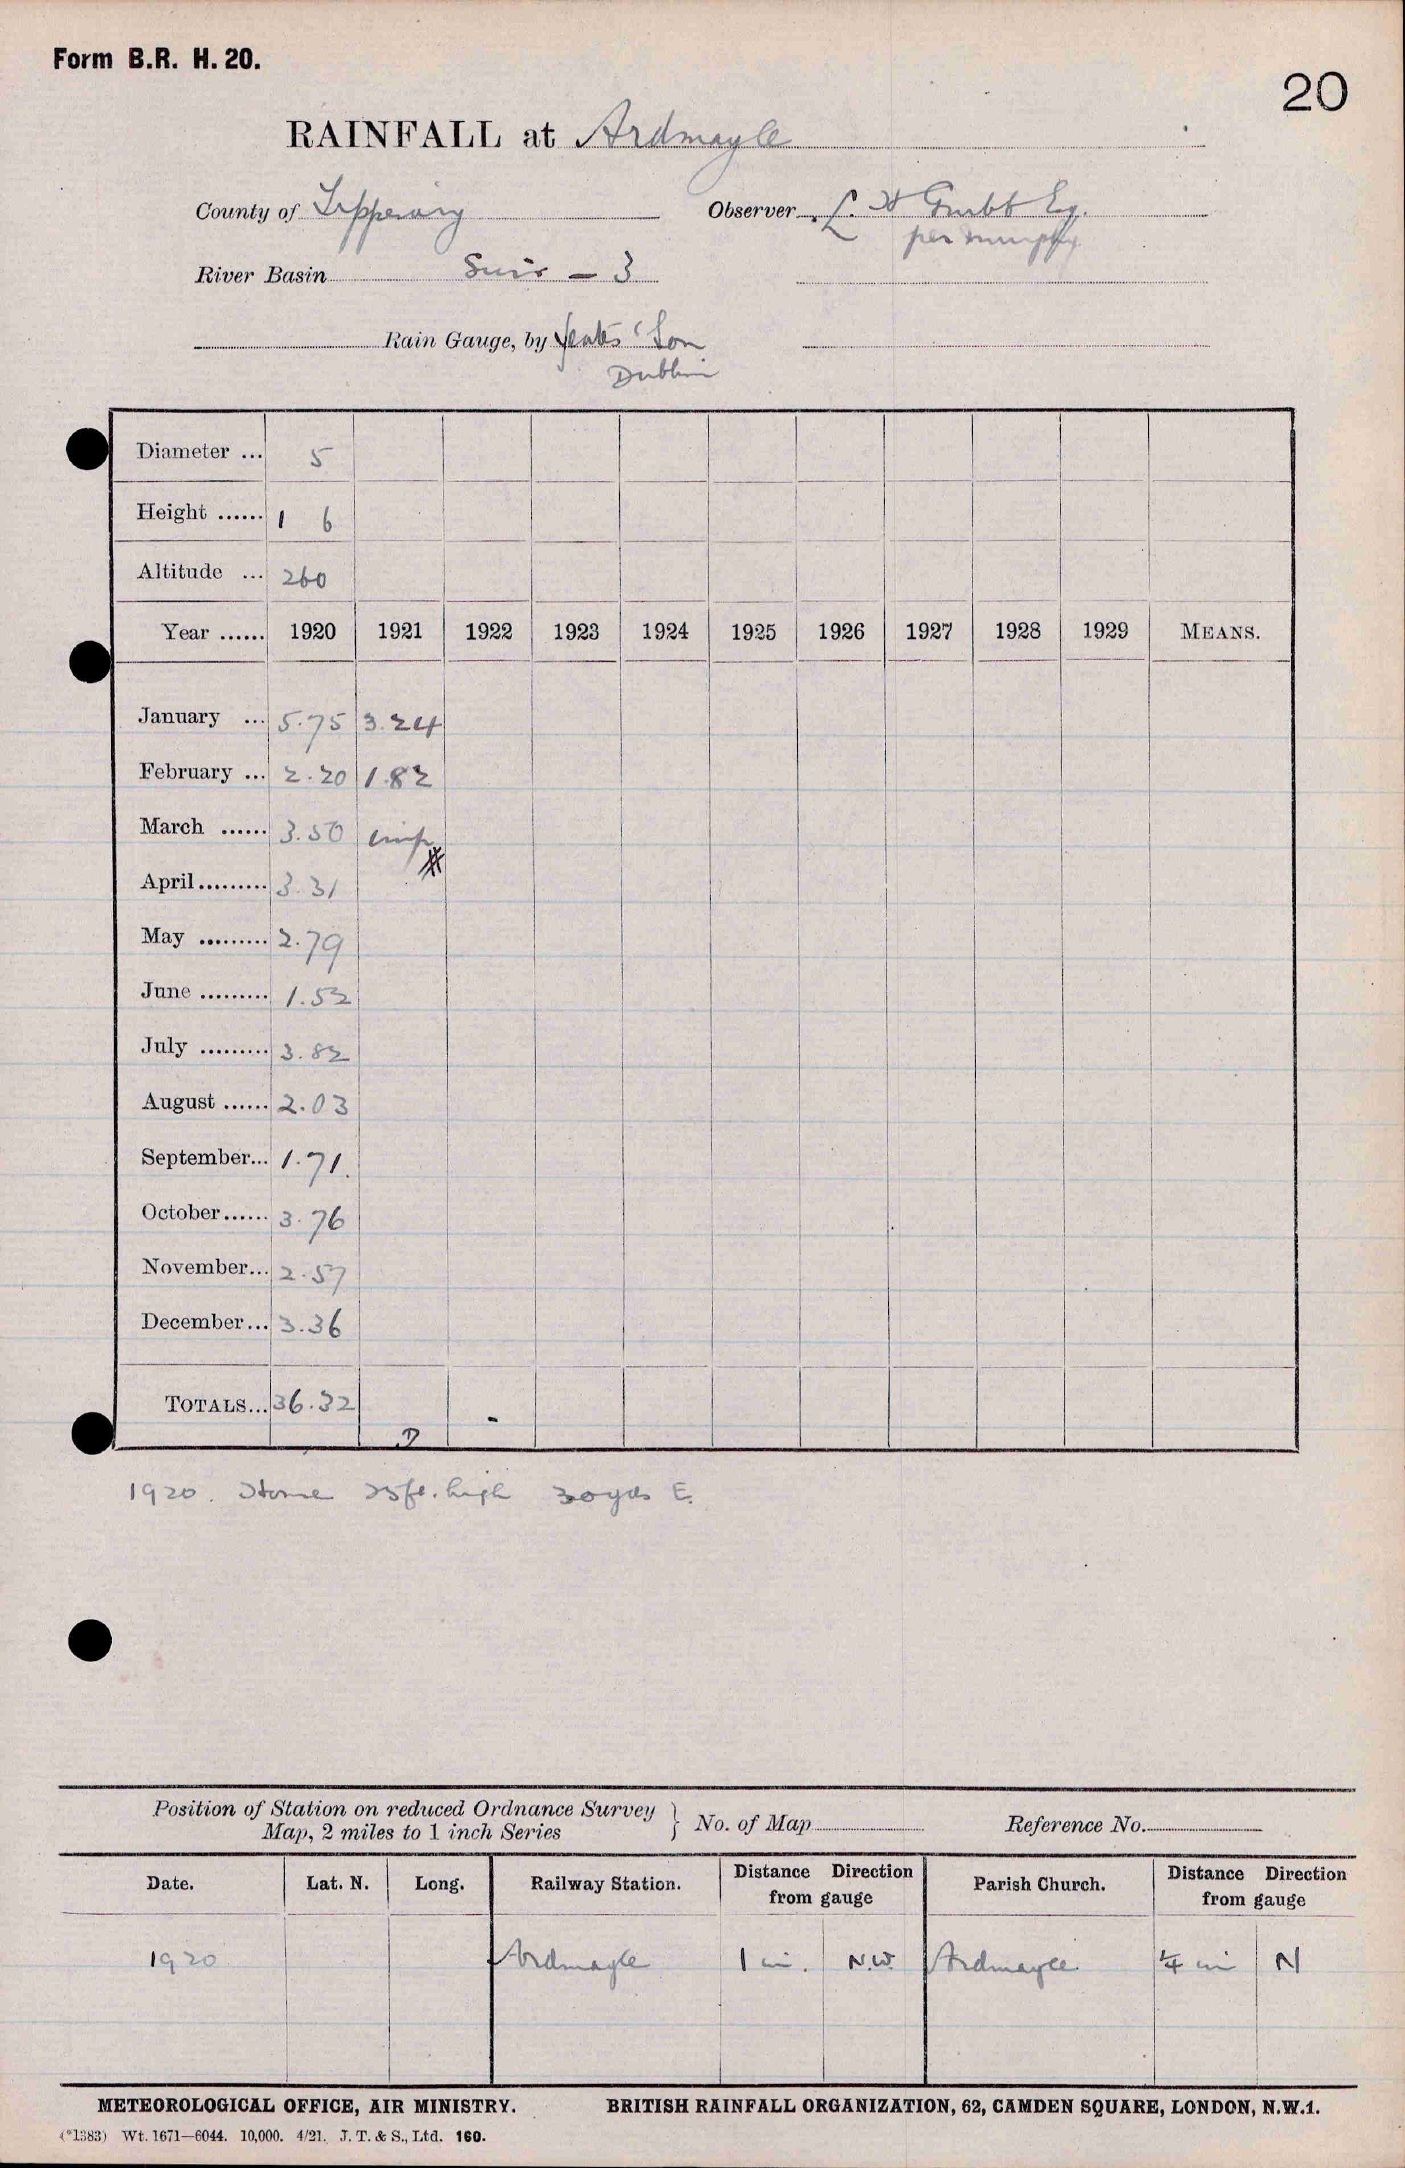 Form B.R. H. 20.
20
RAINFALL at Ardmayle
County of Tipperary Observer L. H Grubb Esq.
per Murphy
River Basin Suir – 3
Rain Gauge, by Yeates & Son
Dublin
Diameter ... 5
Height ...... 1 6
Altitude ... 260
Year ...... 1920 1921 1922 1923 1924 1925 1926 1927 1928 1929 MEANS.
January ... 5.75 3.24
February ... 2.20 1.82
March ...... 3.50 imp
#
April......... 3.31
May ......... 2.79
June ......... 1.52
July ......... 3.82
August ...... 2.03
September... 1.71
October...... 3.76
November... 2.57
December... 3.36
TOTALS... 36.32
D
1920. House 25ft. high 30yds E.
Position of Station on reduced Ordnance Survey
Map, 2 miles to 1 inch Series } No. of Map Reference No.
Date. Lat. N. Long. Railway Station. Distance Direction from gauge Parish Church. Distance Direction from gauge
1920 Ardmayle 1 m. N.W. Ardmayle ¼ m N
METEOROLOGICAL OFFICE, AIR MINISTRY. BRITISH RAINFALL ORGANIZATION, 62, CAMDEN SQUARE, LONDON, N.W.1.
(*1383) Wt. 1671—6044. 10,000. 4/21. J. T. & S., Ltd. 160.